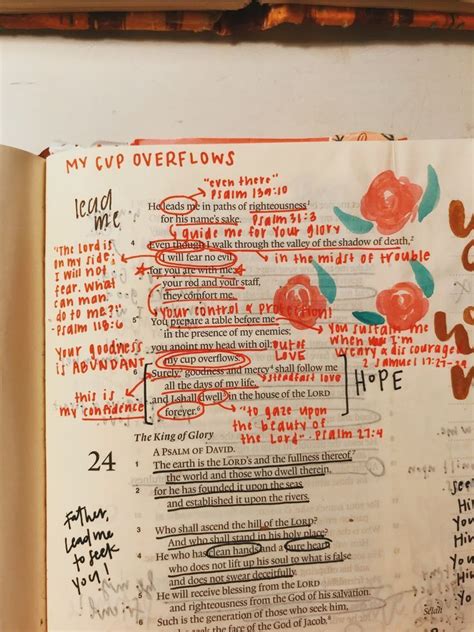 MY CUP OVERFLOWS
"even there"
Psalm 139:10
lead
me
He leads me in paths of righteousness
for his name's sake. Psalm 31:3
guide me for your glory
4 Even though I walk through the valley of the shadow of death,
I will fear no evil, in the midst of trouble
for you are with me;
your rod and your staff,
they comfort me.
"The Lord is
in my side;
I will not
fear. What
can man
do to me?"
-Psalm 118:6
Your control & protection!
5 You prepare a table before me
in the presence of my enemies;
you anoint my head with oil;
my cup overflows.
You sustain me
when I'm
weary & discouraged
2 Samuel 17:27-29
Your goodness
is ABUNDANT
OUT OF
LOVE
6 Surely goodness and mercy shall follow me
all the days of my life, steadfast love
and I shall dwell in the house of the LORD
forever.
HOPE
this is
my confidence
"to gaze upon
the beauty of
the Lord" - Psalm 27:4
The King of Glory
24 A PSALM OF DAVID.
1 The earth is the LORD's and the fullness thereof,
the world and those who dwell therein,
2 for he has founded it upon the seas
and established it upon the rivers.
3 Who shall ascend the hill of the LORD?
And who shall stand in his holy place?
4 He who has clean hands and a pure heart,
who does not lift up his soul to what is false
and does not swear deceitfully.
5 He will receive blessing from the LORD
and righteousness from the God of his salvation.
6 Such is the generation of those who seek him,
who seek the face of the God of Jacob.
Selah
Father,
lead me
to seek
you!